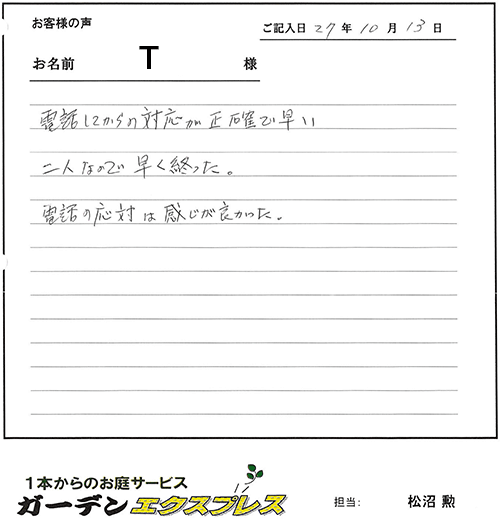 お客様の声
ご記入日 27年 10月 13日
お名前 T 様
電話してからの対応が正確で早い
二人なので早く終った。
電話の応対は感じが良かった。
1本からのお庭サービス
ガーデンエクスプレス
担当: 松沼 勲